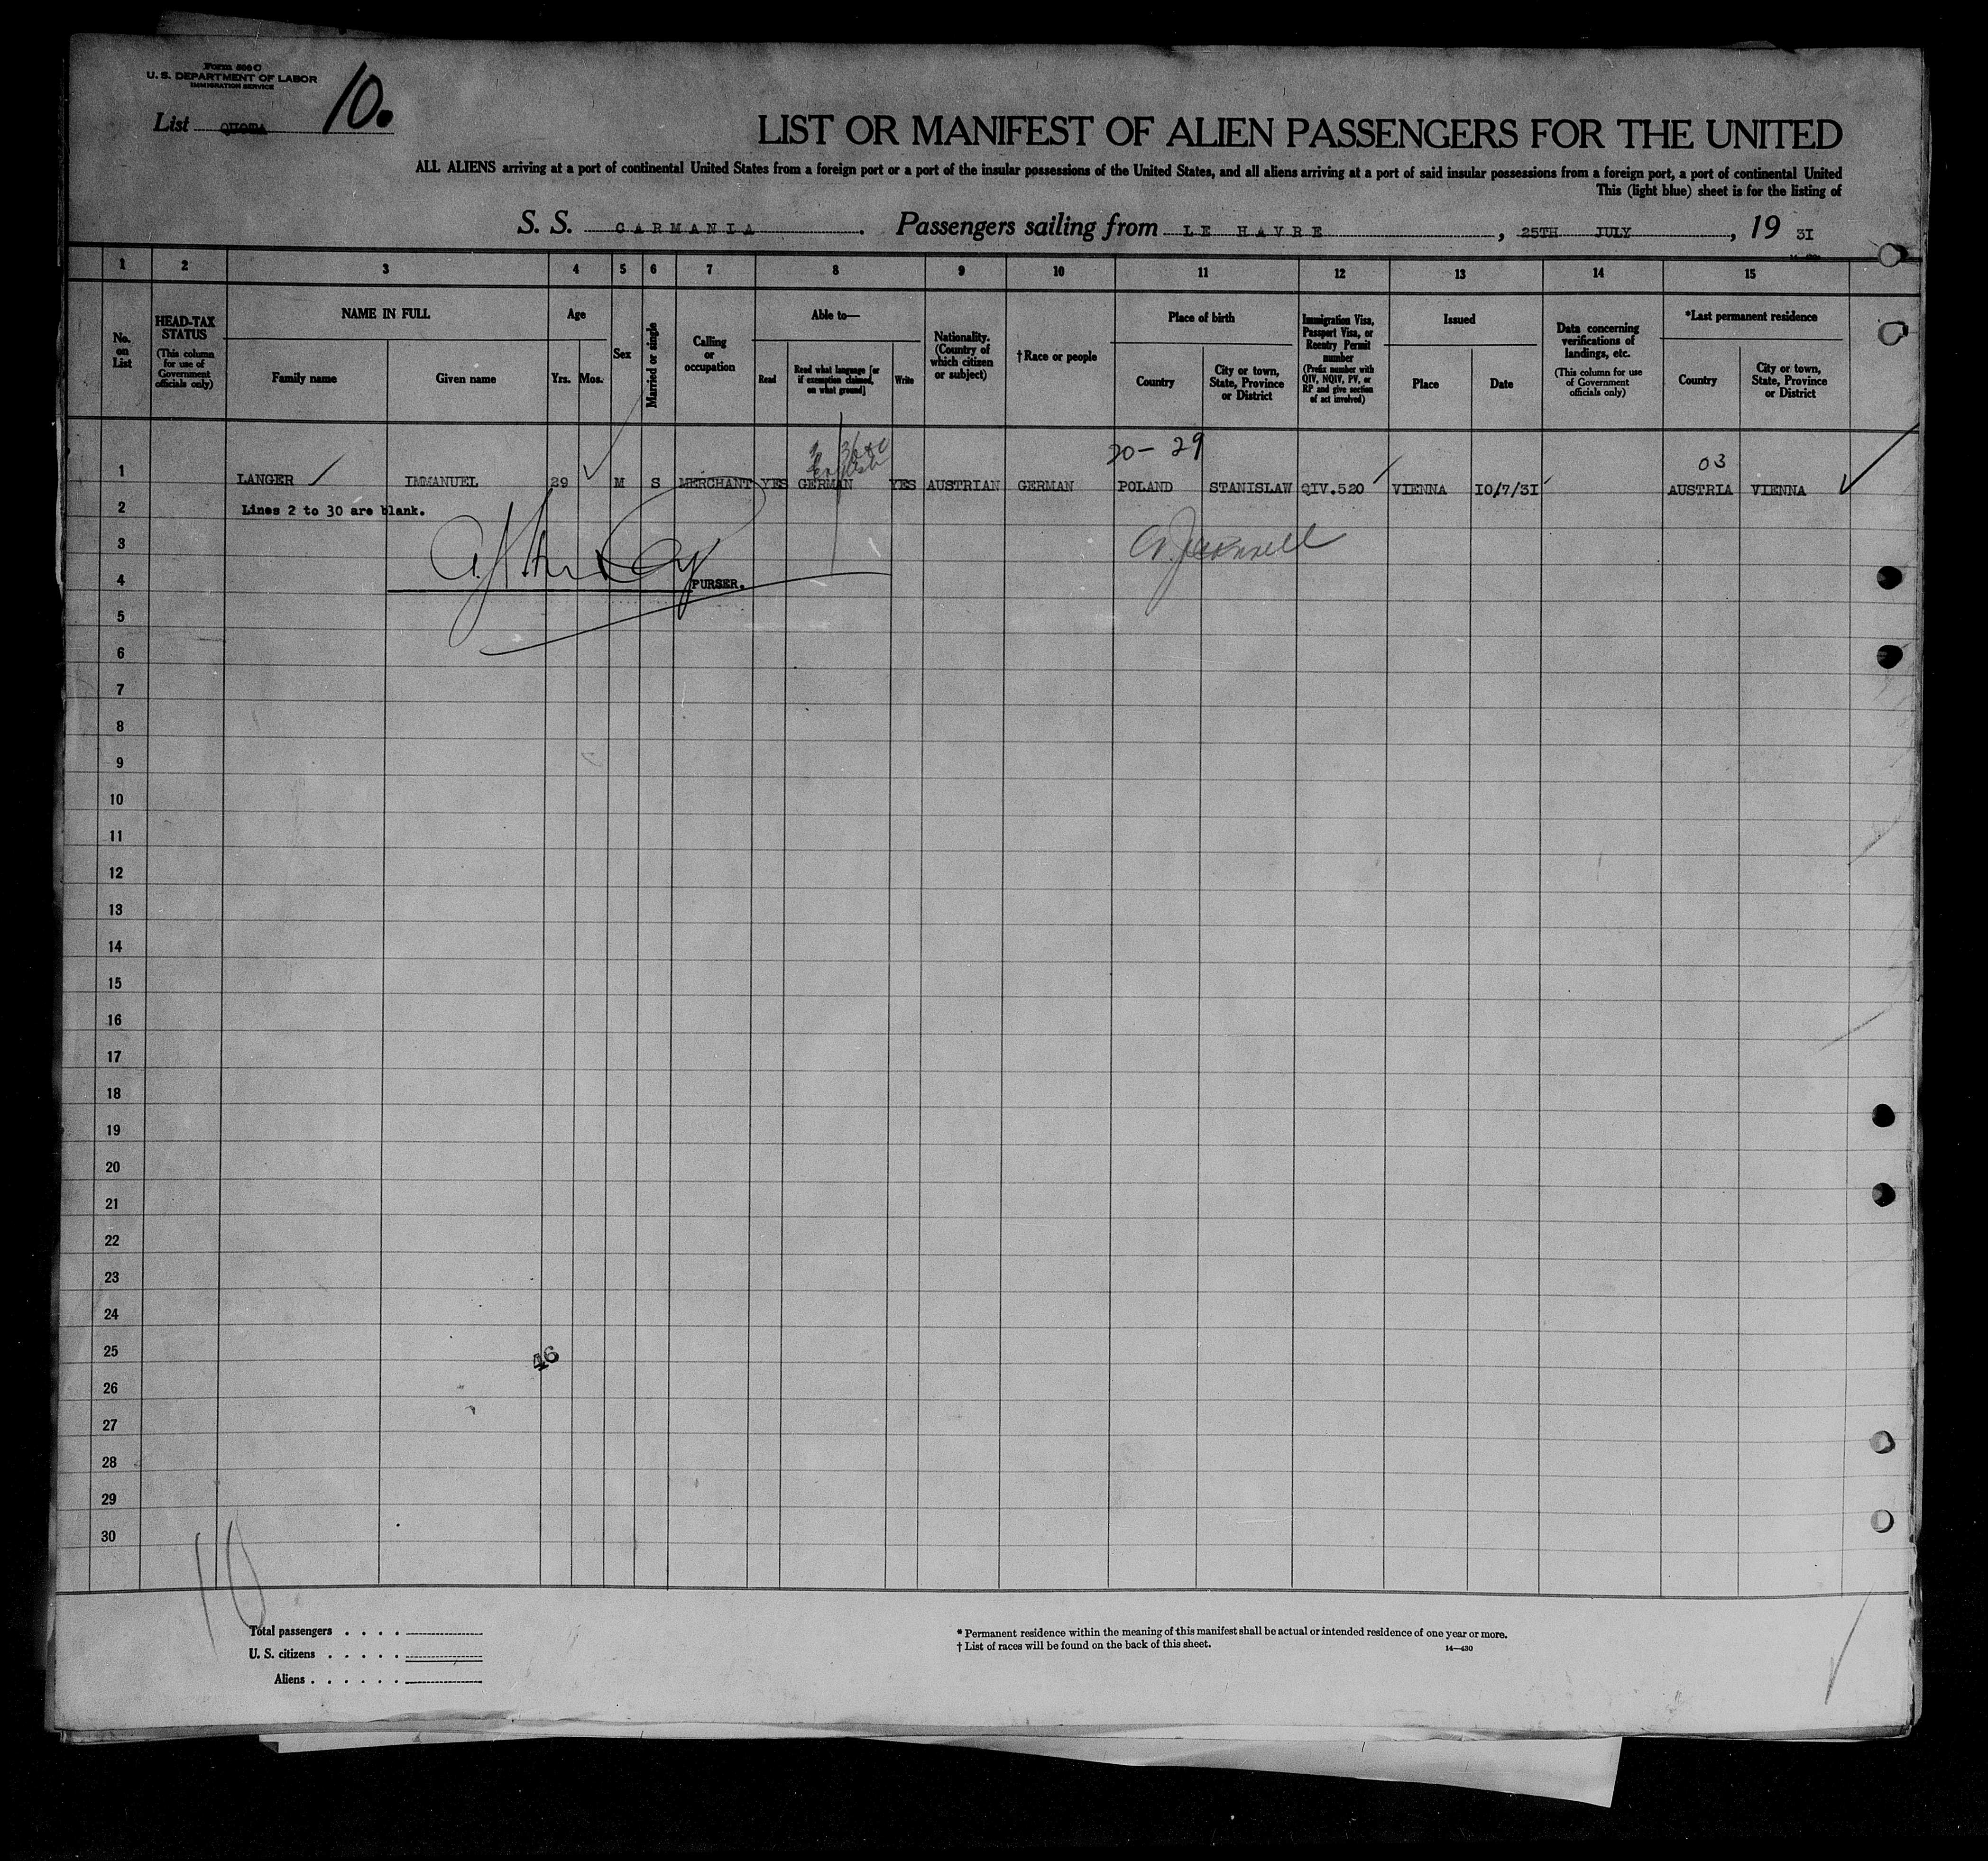 Form 500 C
U. S. DEPARTMENT OF LABOR
IMMIGRATION SERVICE
List QUOTA 10.
LIST OR MANIFEST OF ALIEN PASSENGERS FOR THE UNITED
ALL ALIENS arriving at a port of continental United States from a foreign port or a port of the insular possessions of the United States, and all aliens arriving at a port of said insular possessions from a foreign port, a port of continental United
This (light blue) sheet is for the listing of
S. S. CARMANIA. Passengers sailing from LE HAVRE, 25TH JULY, 19 31
1 2 3 4 5 6 7 8 9 10 11 12 13 14 15
No. on List
HEAD-TAX STATUS
(This column for use of Government officials only)
NAME IN FULL
Family name
Given name
Age
Yrs. Mos.
Sex
Married or single
Calling or occupation
Able to—
Read
Read what language [or if exemption claimed, on what ground]
Write
Nationality. (Country of which citizen or subject)
†Race or people
Place of birth
Country
City or town, State, Province or District
Immigration Visa, Passport Visa, or Reentry Permit number
(Prefix number with QIV, NQIV, PV, or RP and give section of act involved)
Issued
Place
Date
Data concerning verifications of landings, etc.
(This column for use of Government officials only)
*Last permanent residence
Country
City or town, State, Province or District
English
20-29
03
1 LANGER IMMANUEL 29 M S MERCHANT YES GERMAN YES AUSTRIAN GERMAN POLAND STANISLAW QIV.520 VIENNA 10/7/31 AUSTRIA VIENNA
2 Lines 2 to 30 are blank.
3
4 PURSER.
5
6
7
8
9
10
11
12
13
14
15
16
17
18
19
20
21
22
23
24
25
46
26
27
28
29
30
10
Total passengers . . . .
U. S. citizens . . . . .
Aliens . . . . . .
* Permanent residence within the meaning of this manifest shall be actual or intended residence of one year or more.
† List of races will be found on the back of this sheet.
14—430